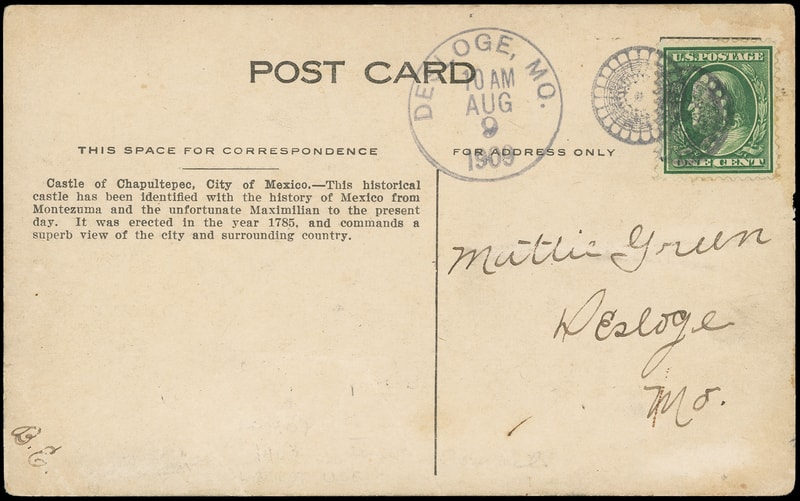 POST CARD
DESLOGE, MO.
10 AM
AUG
9
1909
U.S. POSTAGE
ONE CENT
THIS SPACE FOR CORRESPONDENCE
FOR ADDRESS ONLY
Castle of Chapultepec, City of Mexico.—This historical
castle has been identified with the history of Mexico from
Montezuma and the unfortunate Maximilian to the present
day. It was erected in the year 1785, and commands a
superb view of the city and surrounding country.
Mattie Green
Desloge
Mo.
B.E.